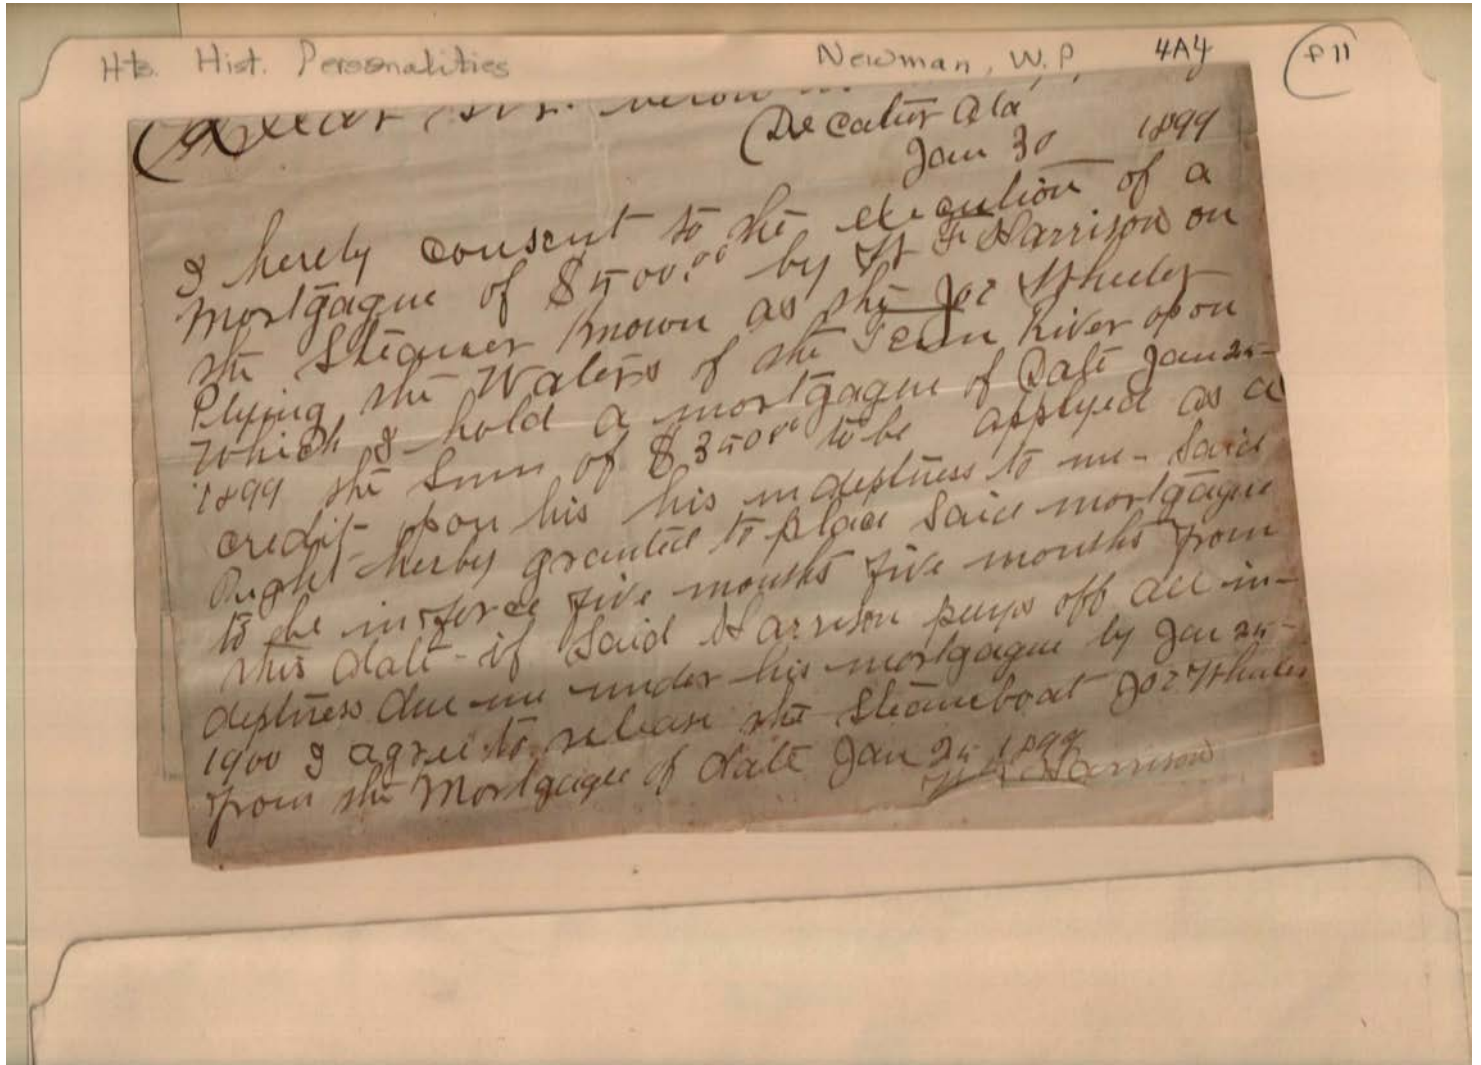 Hts. Hist. Personalities Newman, W.P. 4A4 P 11
Dear Sir. below
Decatur Ala
Jan 30 1899
I hereby consent to the execution of a
Mortgague of $500.00 by H F Harrison on
the Steamer Known as the Joe Wheeler
Plying the Waters of the Tenn River opon
Which I hold a mortgague of Date Jan 25-
1899 the Sum of $350.00 to be applyed as a
credit opon his his indeptness to me - Said
Right herby granted to place Said mortgague
to be inforce five months five months from
this date - if Said Harrison pays off all in-
deptness due me under his mortgague by Jan 25-
1900 I agree to release the Steamboat Joe Wheeler
from the Mortgague of date Jan 25 1899
Harrison